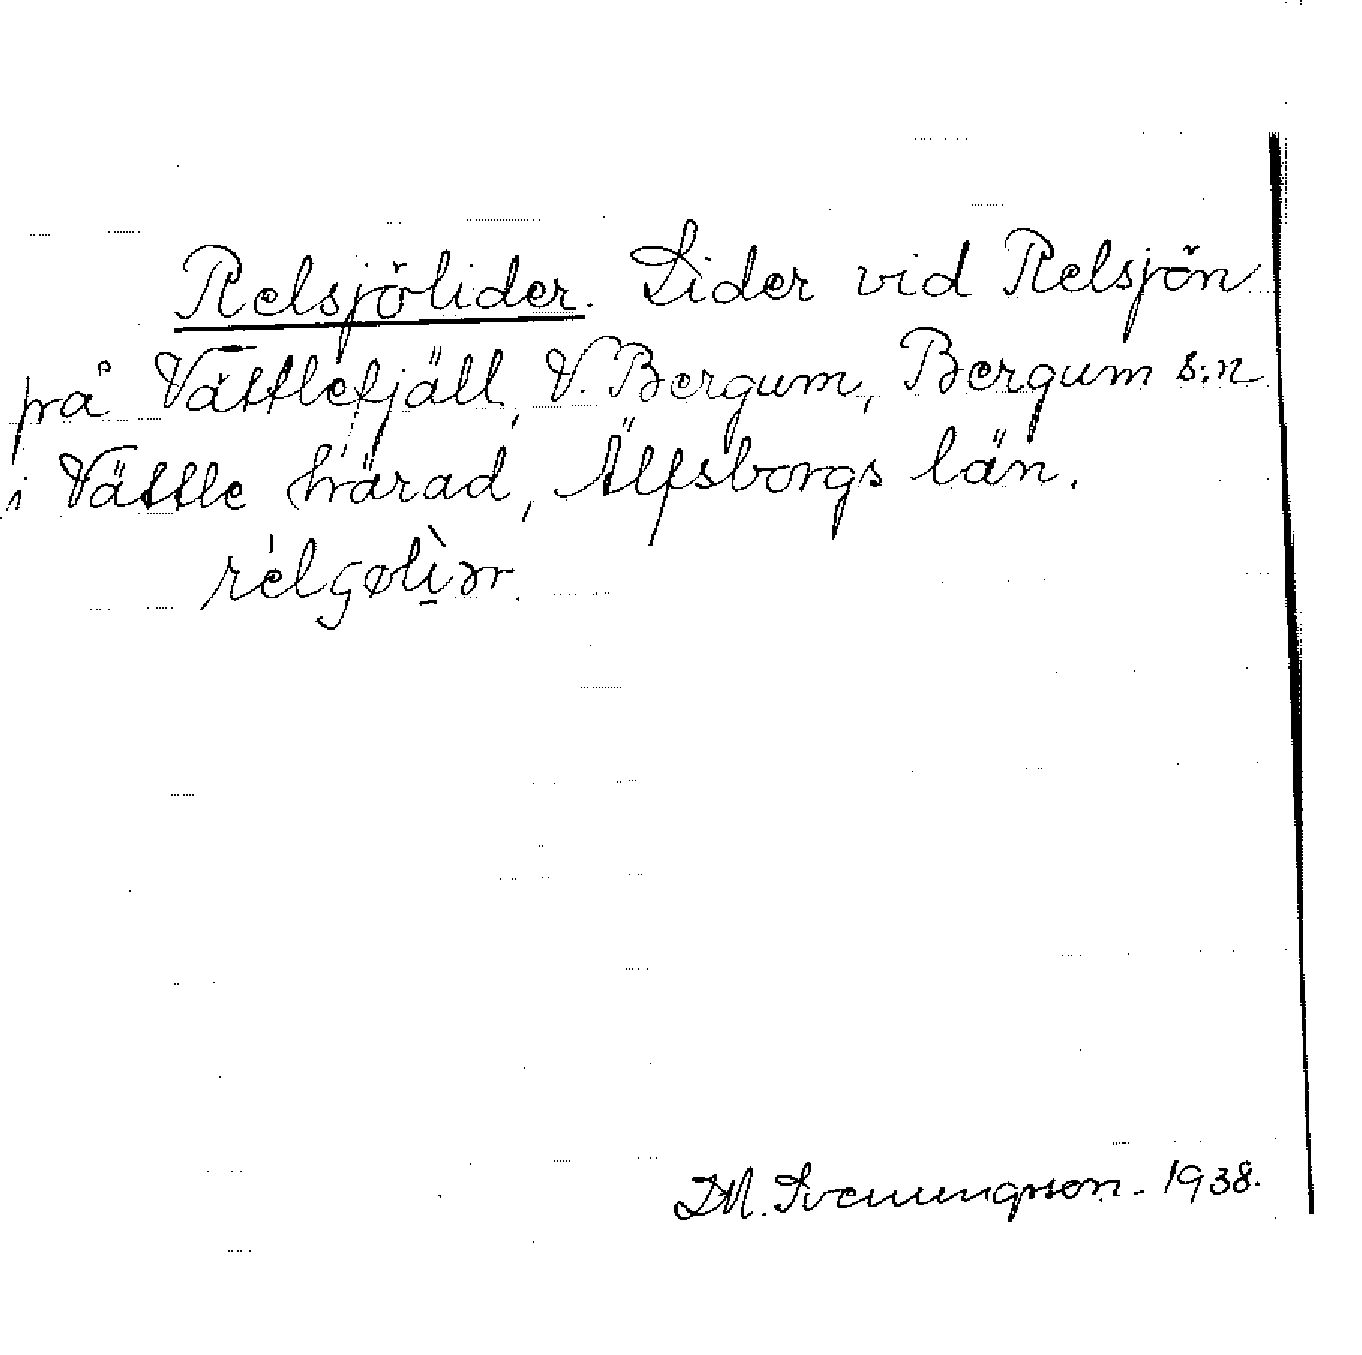 Relsjölider. Lider vid Relsjön
på Vättlefjäll, V. Bergum, Bergum s:n
i Vättle härad, Älfsborgs län.
DM. Svenungsson. 1938.